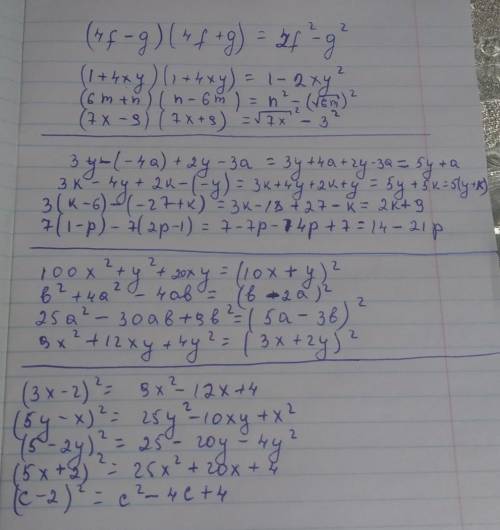 (4f-g)(4f+g) = 2f²-g²
(1+4xy)(1+4xy) = 1-2xy²
(6m+n)(n-6m) = n²-(√6m)²
(7x-9)(7x+9) = √7x² - 3²
3y-(-4a)+2y-3a = 3y+4a+2y-3a = 5y+a
3k-4y+2k-(-y) = 3k+4y+2k+y = 5y+5k=5(y+k)
3(k-6)-(-27+k) = 3k-18+27-k = 2k+9
7(1-p)-7(2p-1) = 7-7p-14p+7 = 14-21p
100x²+y²+20xy = (10x+y)²
b²+4a²-4ab = (b-2a)²
25a²-30ab+9b² = (5a-3b)²
9x²+12xy+4y² = (3x+2y)²
(3x-2)² = 9x²-12x+4
(5y-x)² = 25y²-10xy+x²
(5-2y)² = 25-20y-4y²
(5x+2)² = 25x²+20x+4
(c-2)² = c²-4c+4